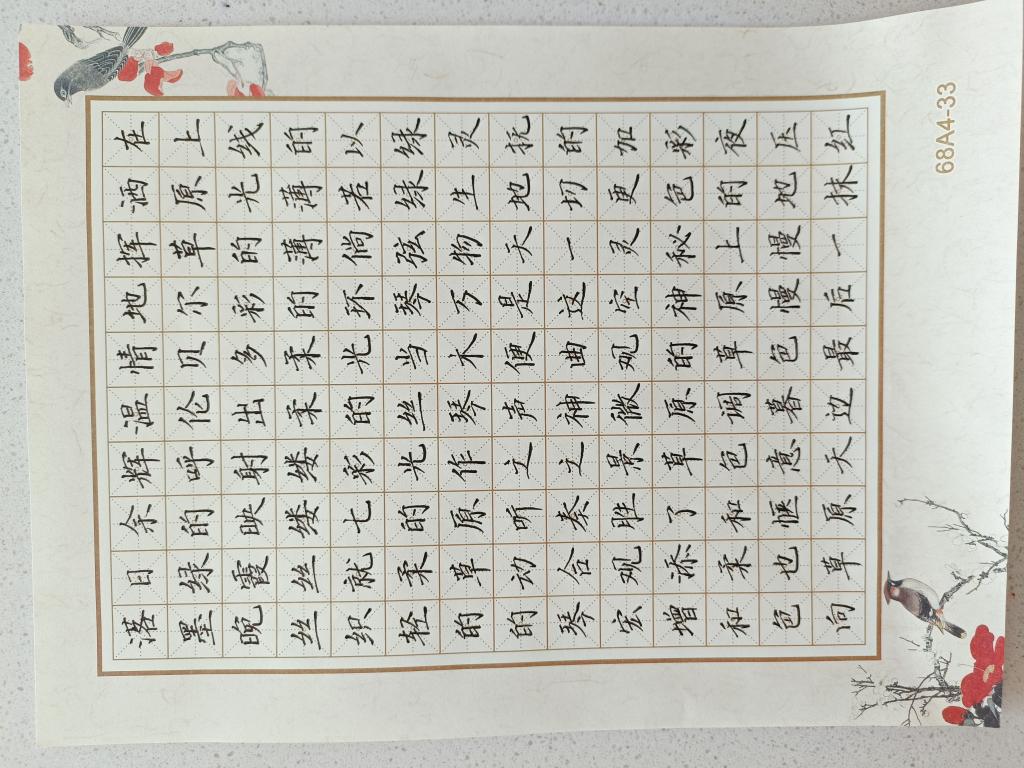 落日余辉温情地挥洒在
墨绿的呼伦贝尔草原上
晚霞映射出多彩的光线
丝丝缕缕柔柔的薄薄的
织就七彩的光环倘若以
轻柔的光丝当琴弦绿绿
的草原作琴木万物生灵
的动听之声便是天地抚
琴合奏之神曲这一切的
宏观胜景微观空灵更加
增添了草原的神秘色彩
和柔和色调草原上的夜
色也惬意暮色慢慢地压
向草原天边最后一抹红
68A4-33